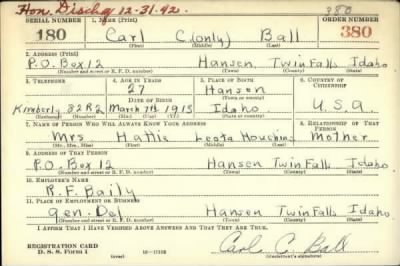 Hon. Dischg 12-31-42. 380
SERIAL NUMBER 1. Name (Print) ORDER NUMBER
180 Carl C(only) Ball 380
(First) (Middle) (Last)
2. Address (Print)
P.O. Box 12 Hansen, Twin Falls Idaho
(Number and street or R. F. D. number) (Town) (County) (State)
3. Telephone 4. Age in Years 5. Place of Birth 6. Country of Citizenship
27 Hansen
Date of Birth (Town or county)
Kimberly 32R2 March 7th 1913 Idaho U.S.A
(Exchange) (Number) (Mo.) (Day) (Yr.) (State or country)
7. Name of Person Who Will Always Know Your Address 8. Relationship of That Person
Mrs Hattie Leota Mother
(Mr., Mrs., Miss) (First) (Middle) (Last)
9. Address of That Person
P.O. Box 12 Hansen Twin Falls, Idaho
(Number and street or R. F. D. number) (Town) (County) (State)
10. Employer's Name
R.F. Baily
11. Place of Employment or Business
Gen. Del Hansen Twin Falls Idaho
(Number and street or R. F. D. number) (Town) (County) (State)
I Affirm That I Have Verified Above Answers and That They Are True.
REGISTRATION CARD
D. S. S. Form 1 (over) Carl C. Ball
(Registrant's signature)